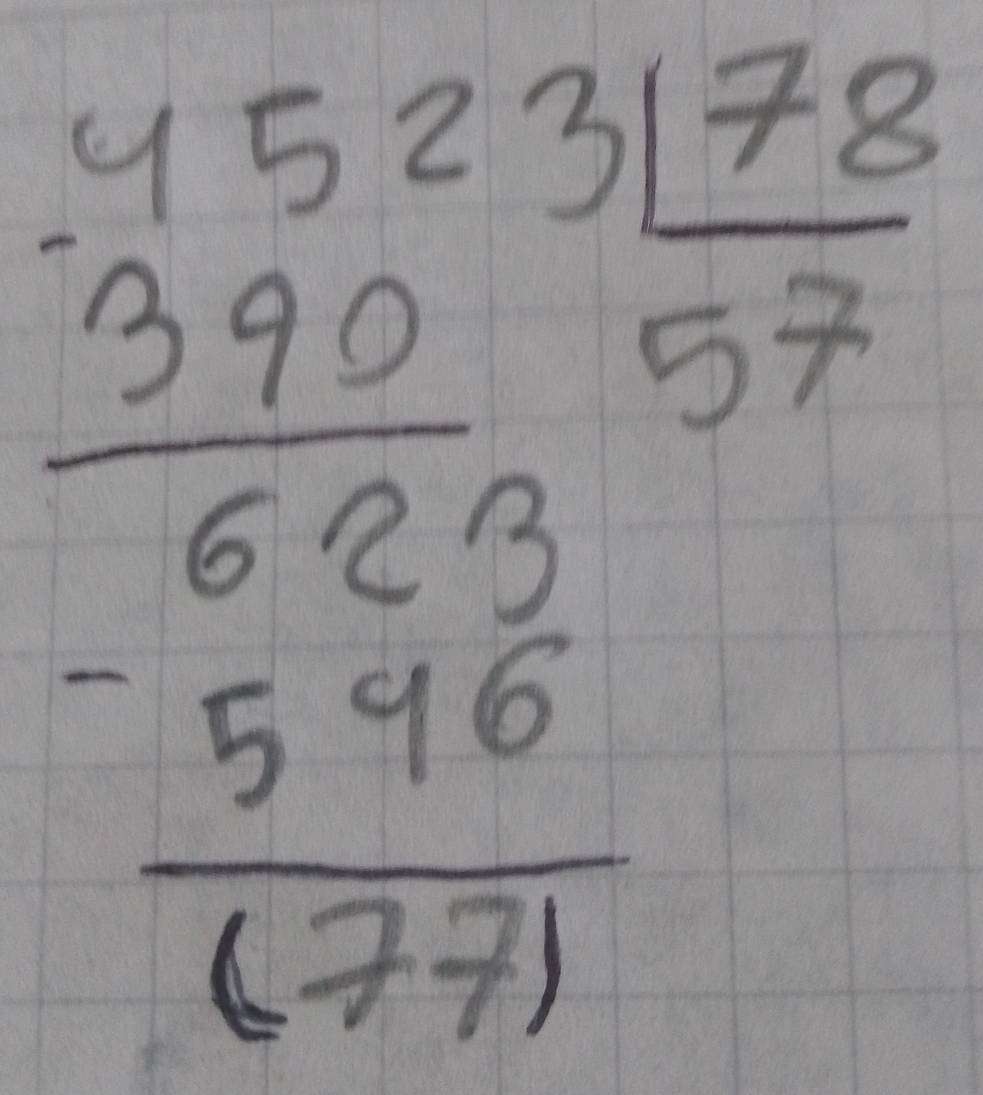 4523 78
- 390 57
623
- 546
(77)